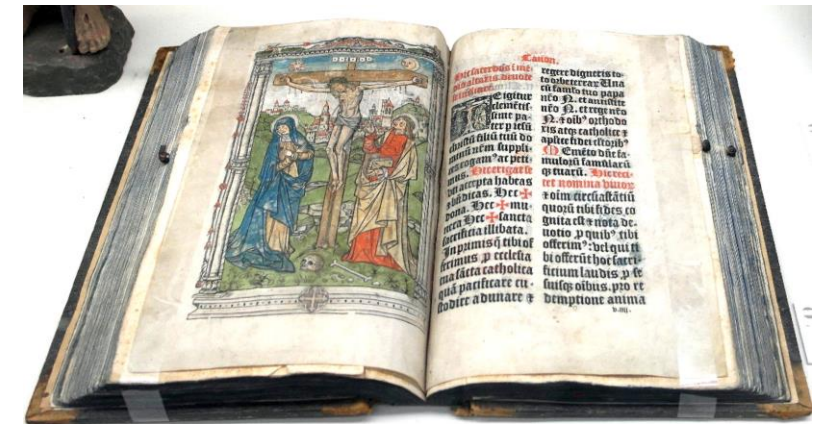 Canon.
Hic sacerdos
TE igitur
clemẽtis-
sime pa-
ter ꝑ iesũ
christũ filiũ tuũ do
minũ nr̃m suppli-
ces rogam⁹ ac peti
mus. Hic erigat se
vti accepta habeas
⁊ bñdicas. Hec ✠
dona. Hec ✠ mu-
nera Hec ✠ sancta
sacrificia illibata.
In primis q̃ tibi of
ferimus ꝓ ecclesia
tua sãcta catholica
quã pacificare cu-
stodire adunare ⁊
regere digneris to-
to orbe terrarũ Una
cũ famlo tuo papa
nr̃o N. et antistite
nr̃o N. et rege nr̃o
N. ⁊ oib⁹ orthodo
xis atqꝫ catholice ⁊
apl̃ice fidei cultorib⁹
Memẽto dñe fa-
mulorũ famularũ
qꝫ tuarũ. Hic reci-
tet nomina viuorũ
⁊ oĩm circũstãtiũ
quorũ tibi fides co
gnita est ⁊ nota de-
uotio ꝓ quib⁹ tibi
offerim⁹: vel qui ti
bi offerũt hoc sacri-
ficium laudis, ꝓ se
suisqꝫ oĩbus. pro re
demptione anima